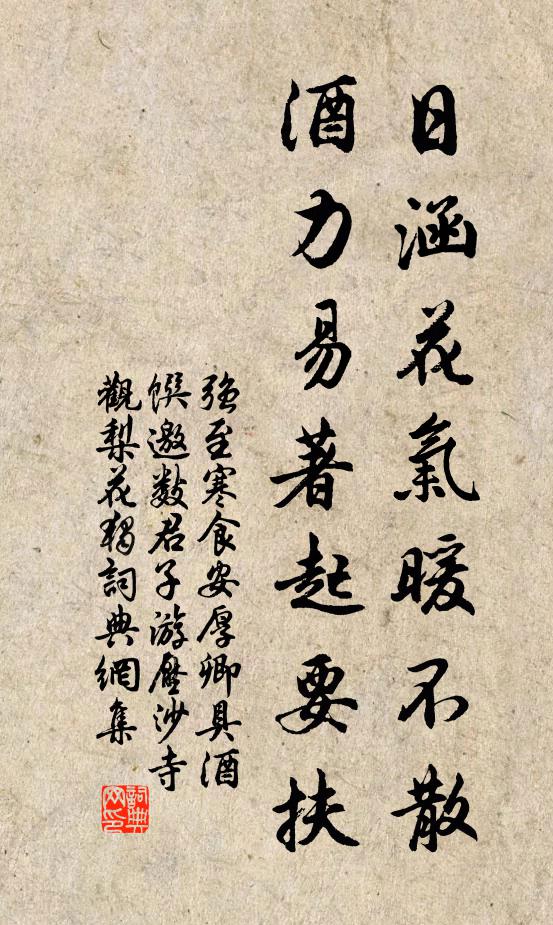 日涵花氣暖不散
酒力易著起要扶
強至寒食安厚卿具酒
饌邀數君子游壓沙寺
觀梨花獨詞典網集
詞典
网印